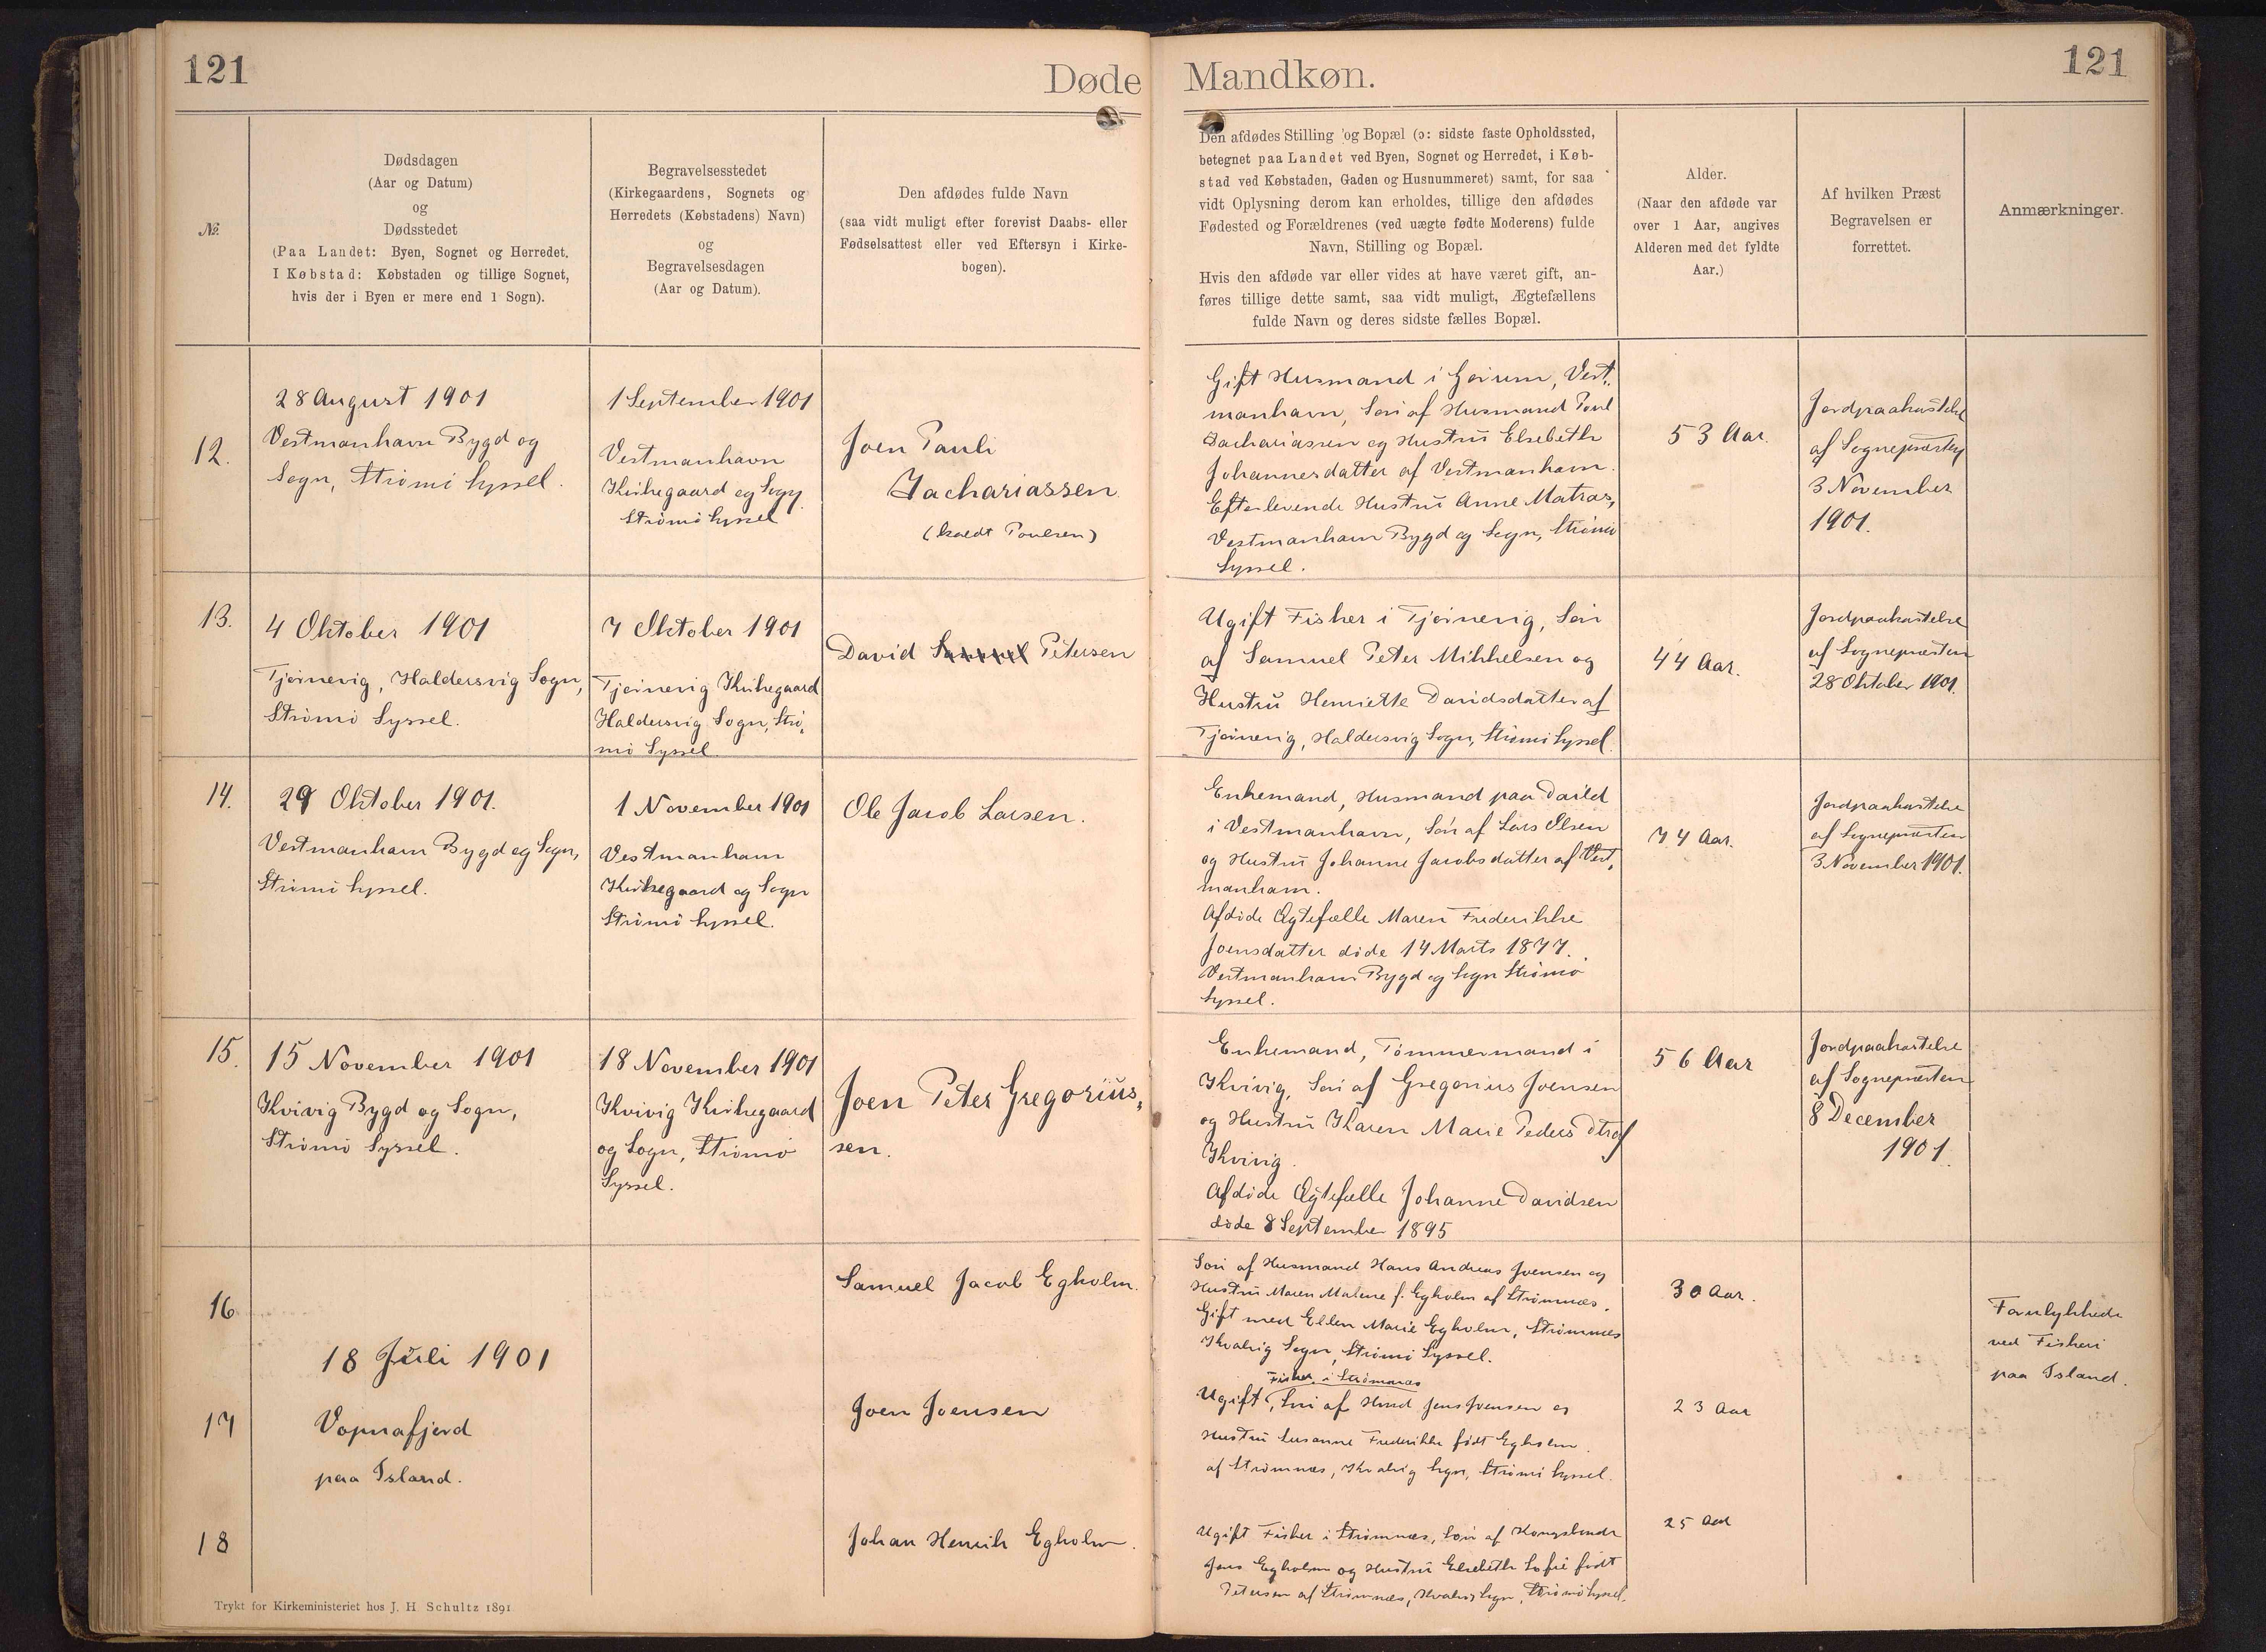 121
Døde
Mandkøn.
121
№.
Dødsdagen
(Aar og Datum)
og
Dødsstedet
(Paa Landet: Byen, Sognet og Herredet.
I Købstad: Købstaden og tillige Sognet,
hvis der i Byen er mere end 1 Sogn).
Begravelsesstedet
(Kirkegaardens, Sognets og
Herredets (Købstadens) Navn)
og
Begravelsesdagen
(Aar og Datum).
Den afdødes fulde Navn
(saa vidt muligt efter forevist Daabs- eller
Fødselsattest eller ved Eftersyn i Kirke-
bogen).
Den afdødes Stilling og Bopæl (ɔ: sidste faste Opholdssted,
betegnet paa Landet ved Byen, Sognet og Herredet, i Køb-
stad ved Købstaden, Gaden og Husnummeret) samt, for saa
vidt Oplysning derom kan erholdes, tillige den afdødes
Fødested og Forældrenes (ved uægte fødte Moderens) fulde
Navn, Stilling og Bopæl.
Hvis den afdøde var eller vides at have været gift, an-
føres tillige dette samt, saa vidt muligt, Ægtefællens
fulde Navn og deres sidste fælles Bopæl.
Alder.
(Naar den afdøde var
over 1 Aar, angives
Alderen med det fyldte
Aar.)
Af hvilken Præst
Begravelsen er
forrettet.
Anmærkninger.
12.
28 August 1901
Vestmanhavn Bygd og
Sogn, Strömö Syssel.
1 September 1901
Vestmanhavn
Kirkegaard og Sogn
Strömö Syssel
Joen Pauli
Zachariassen
(kaldt Poulsen)
Gift Husmand i Gerum, Vest-
manhavn, Sön af Husmand Poul
Zachariassen og Hustru Elsebeth
Johannesdatter af Vestmanhavn.
Efterlevende Hustru Anne Matras,
Vestmanhavn Bygd og Sogn, Strömö
Syssel.
53 Aar.
Jordpaakastelse
af Sognepræsten
3 November
1901.
13.
4 Oktober 1901
Tjörnevig, Haldersvig Sogn,
Strömö Syssel.
7 Oktober 1901
Tjörnevig Kirkegaard
Haldersvig Sogn, Strö-
mö Syssel.
David Samuel Petersen
Ugift Fisker i Tjörnevig, Sön
af Samuel Peter Mikkelsen og
Hustru Henriette Davidsdatter af
Tjörnevig, Haldersvig Sogn, Strömö Syssel.
44 Aar.
Jordpaakastelse
af Sognepræsten
28 Oktober 1901.
14.
29 Oktober 1901.
Vestmanhavn Bygd og Sogn,
Strömö Syssel.
1 November 1901
Vestmanhavn
Kirkegaard og Sogn
Strömö Syssel.
Ole Jacob Larsen.
Enkemand, Husmand paa
i Vestmanhavn, Sön af Lars Olsen
og Hustru Johanne Jacobsdatter af Vest-
manhavn.
Afdöde Ægtefælle Maren Frederikke
Joensdatter döde 14 Marts 1877.
Vestmanhavn Bygd og Sogn Strömö
Syssel.
74 Aar.
Jordpaakastelse
af Sognepræsten
3 November 1901.
15.
15 November 1901
Kvivig Bygd og Sogn,
Strömö Syssel.
18 November 1901
Kvivig Kirkegaard
og Sogn, Strömö
Syssel.
Joen Peter Gregorius-
sen.
Enkemand, Tömmermand i
Kvivig, Sön af Gregorius Joensen
og Hustru Karen Marie Peders Dtr af
Kvivig.
Afdöde Ægtefælle Johanne Davidsen
döde 8 September 1895
56 Aar
Jordpaakastelse
af Sognepræsten
8 December
1901.
16
18 Juli 1901
Vopnafjord
paa Island.
Samuel Jacob Egholm.
Sön af Husmand Hans Andreas Joensen og
Hustru Maren Malene f. Egholm af Strömnæs.
Gift med Ellen Marie Egholm, Strömnæs
Kvalvig Sogn, Strömö Syssel.
30 Aar.
Forulykkede
ved Fiskeri
paa Island.
17
Joen Joensen
Fisker i Strömnæs
Ugift, Sön af Hmd Jens Joensen og
Hustru Susanne Frederikke födt Egholm
af Strömnæs, Kvalvig Sogn, Strömö Syssel.
23 Aar
18
Johan Henrik Egholm.
Ugift Fisker i Strömnæs, Sön af Kongsbonde
Jens Egholm og Hustru Elsebeth Sofie födt
Petersen af Strömnæs, Kvalvig Sogn, Strömö Syssel.
25 Aar
Trykt for Kirkeministeriet hos J. H. Schultz 1891